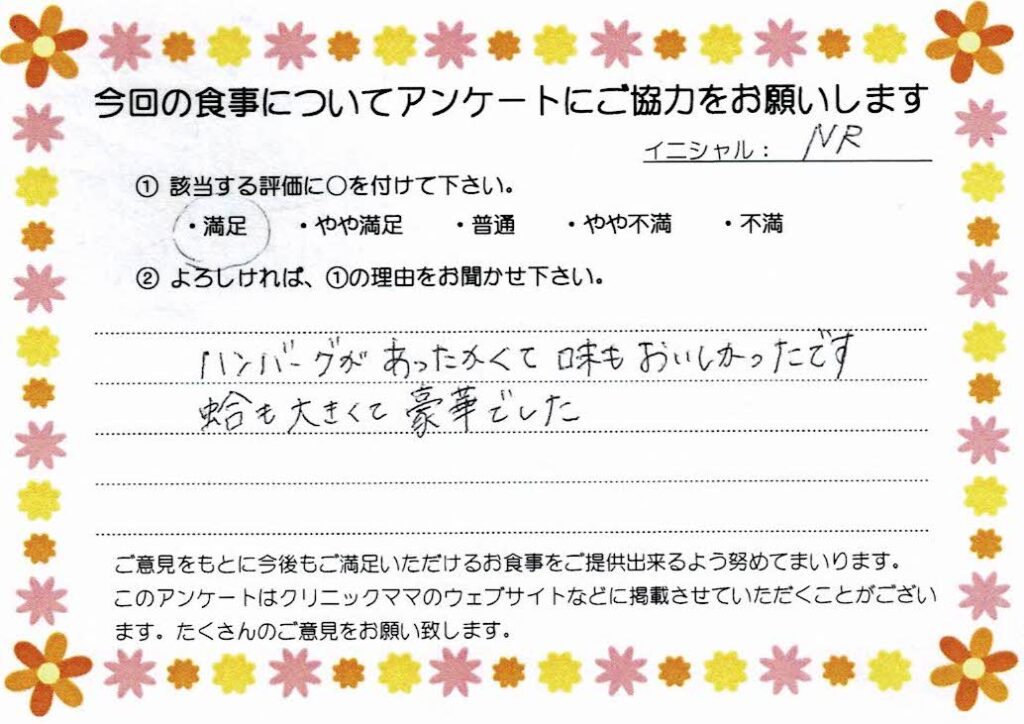 今回の食事についてアンケートにご協力をお願いします
イニシャル： NR
① 該当する評価に〇を付けて下さい。
・満足 ・やや満足 ・普通 ・やや不満 ・不満
② よろしければ、①の理由をお聞かせ下さい。
ハンバーグが あったかくて 味も おいしかったです
蛤も大きくて豪華でした
ご意見をもとに今後もご満足いただけるお食事をご提供出来るよう努めてまいります。
このアンケートはクリニックママのウェブサイトなどに掲載させていただくことがござい
ます。たくさんのご意見をお願い致します。